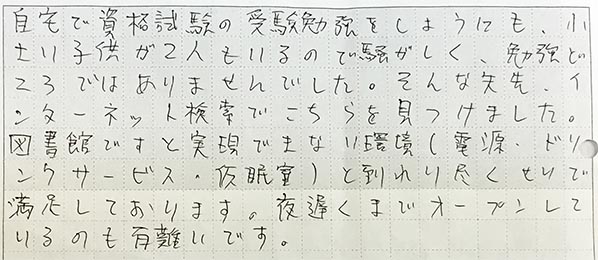 自宅で資格試験の受験勉強をしようにも、小
さい子供が2人もいるので騒がしく、勉強ど
ころではありませんでした。そんな矢先、イ
ンターネット検索でこちらを見つけました。
図書館ですと実現できない環境(電源・ドリ
ンクサービス・仮眠室)と至れり尽くせりで
満足しております。夜遅くまでオープンして
いるのも有難いです。